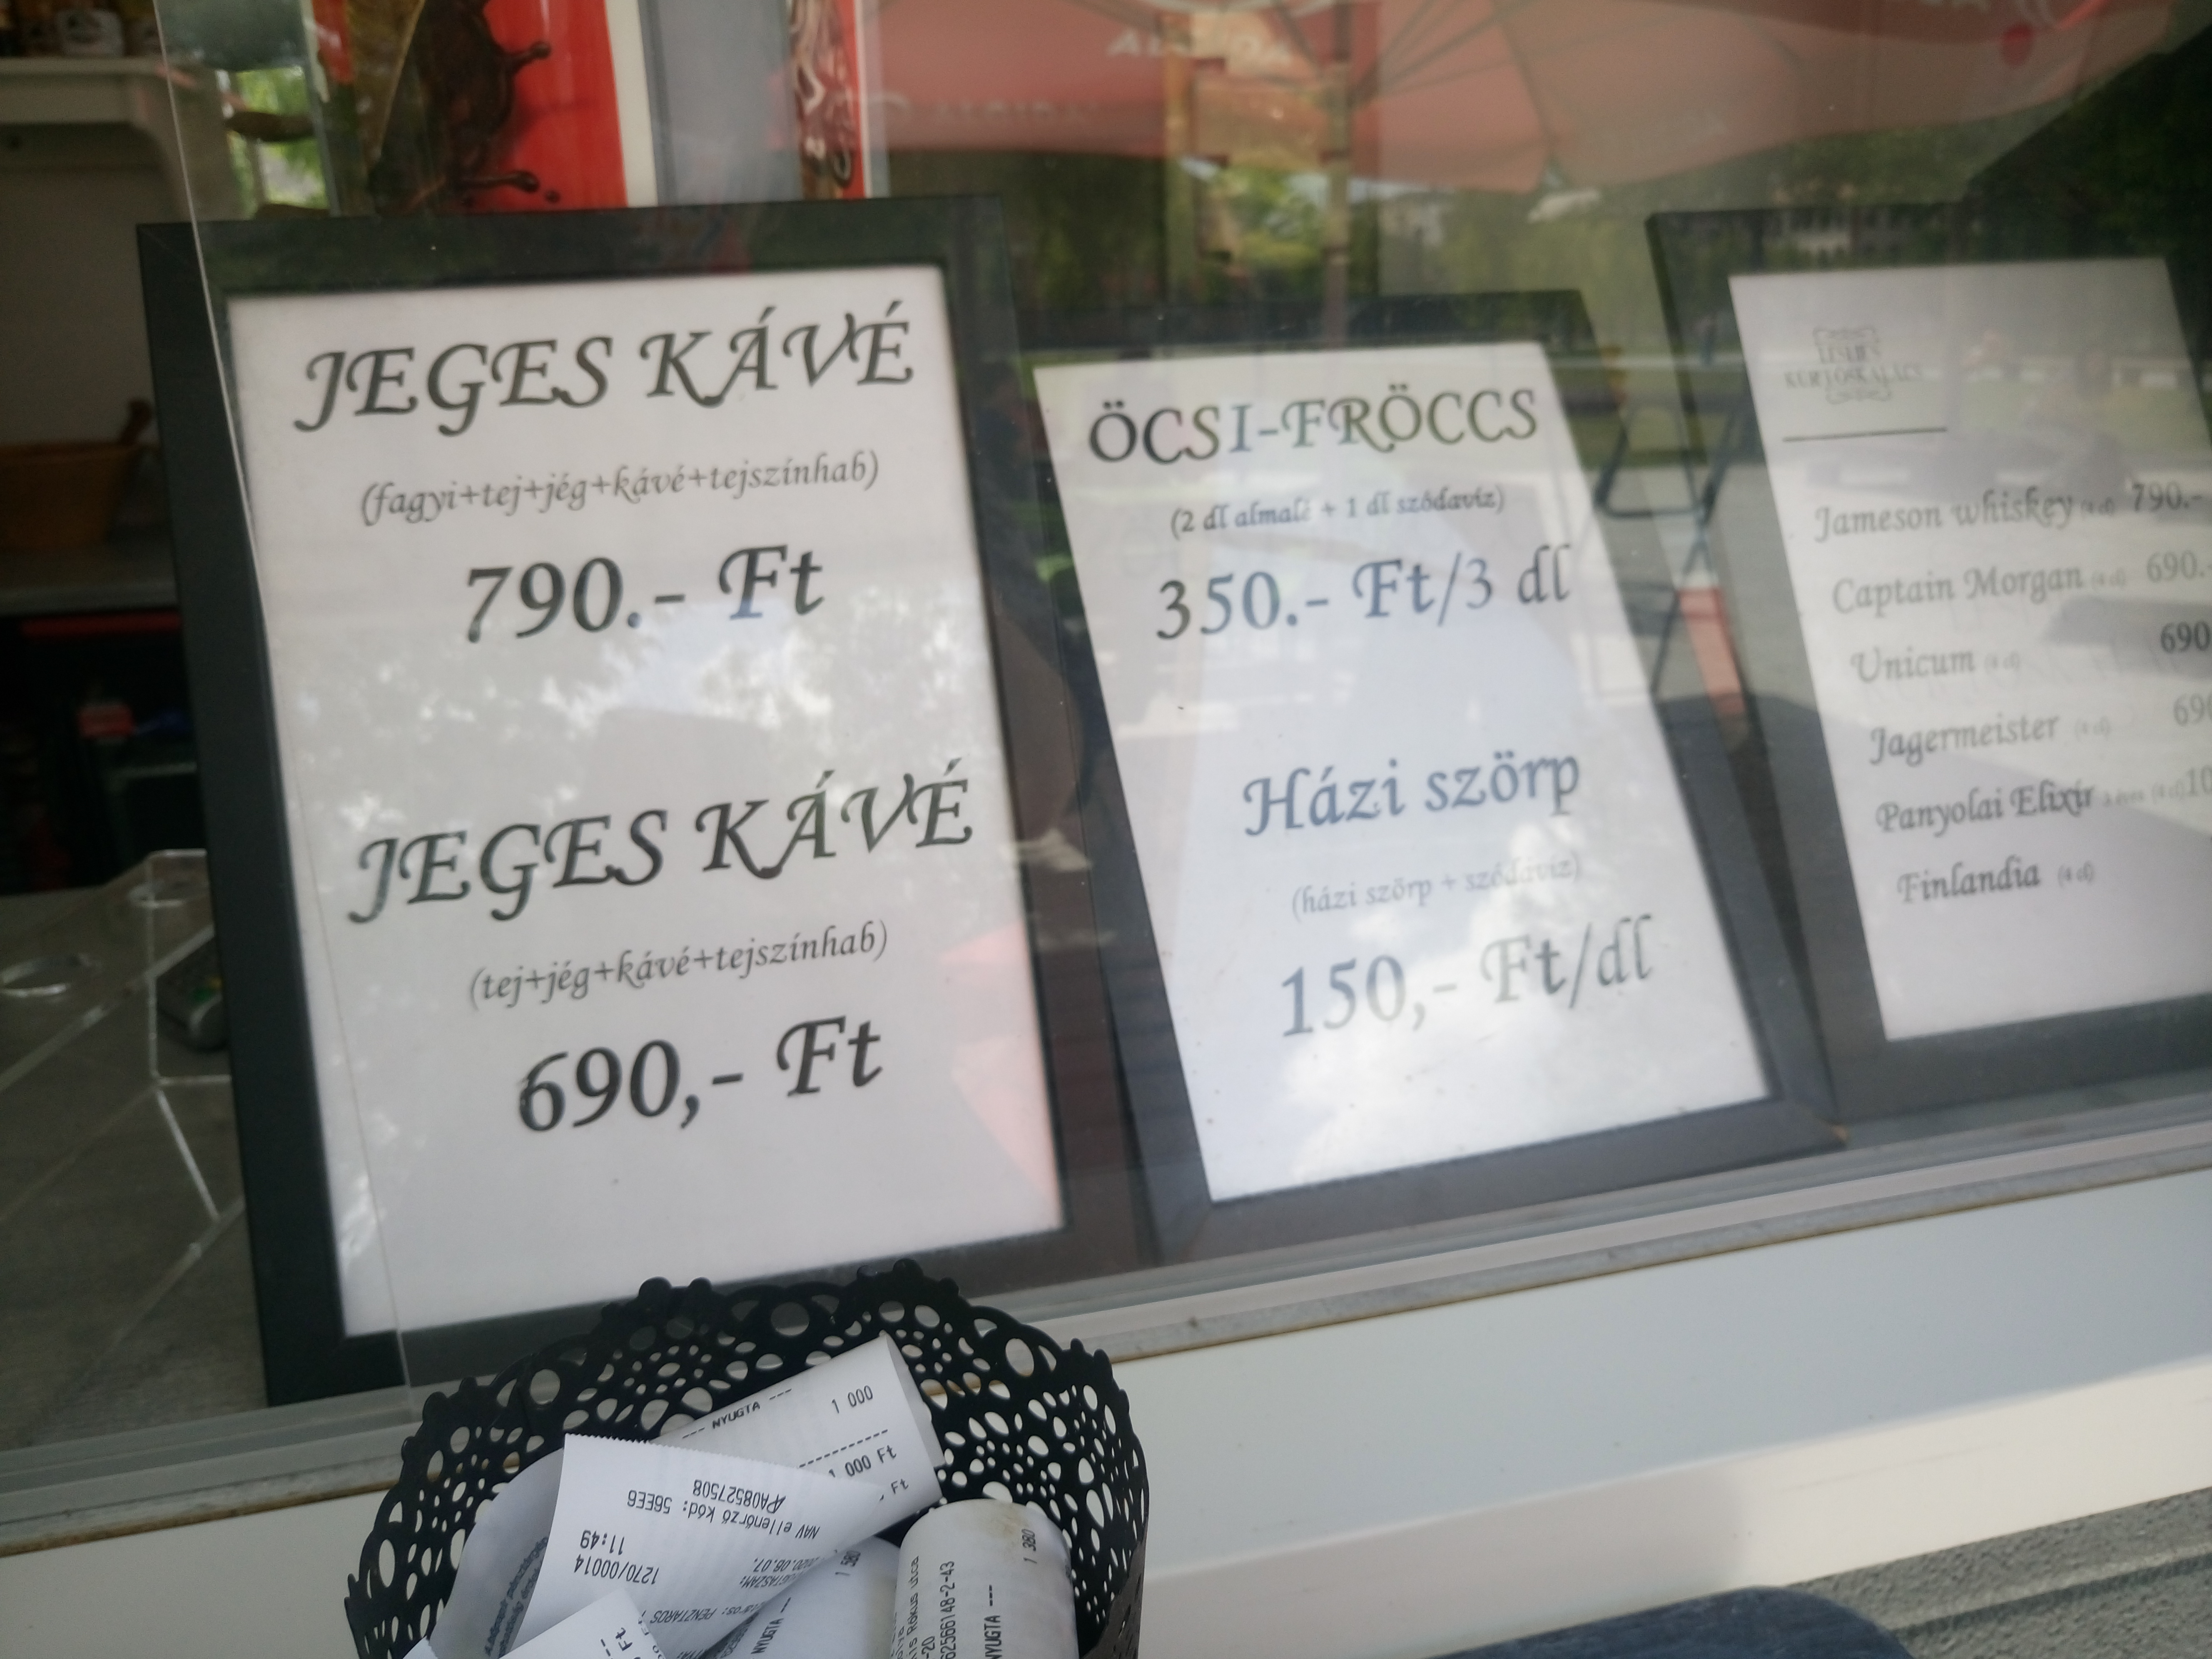 ALGIDA
JEGES KÁVÉ
(fagyi+tej+jég+kávé+tejszínhab)
790.- Ft
JEGES KÁVÉ
(tej+jég+kávé+tejszínhab)
690,- Ft
ÖCSI-FRÖCCS
(2 dl almalé + 1 dl szódavíz)
350.- Ft/3 dl
Házi szörp
(házi szörp + szódavíz)
150,- Ft/dl
KÜRTŐSKALÁCS
Jameson whiskey (4 cl) 790.-
Captain Morgan (4 cl) 690.-
Unicum (4 cl) 690
Jagermeister (4 cl) 690
Panyolai Elixír (4 cl) 10
Finlandia (4 cl)
--- NYUGTA ---
1 000
1 000 Ft
Ft
NAV ellenőrző kód: 56EE6
A08527508
1270/00014
11:49
1 580
NYUGTA ---
1 380
Rókus utca
62566148-2-43
NYUGTA ---